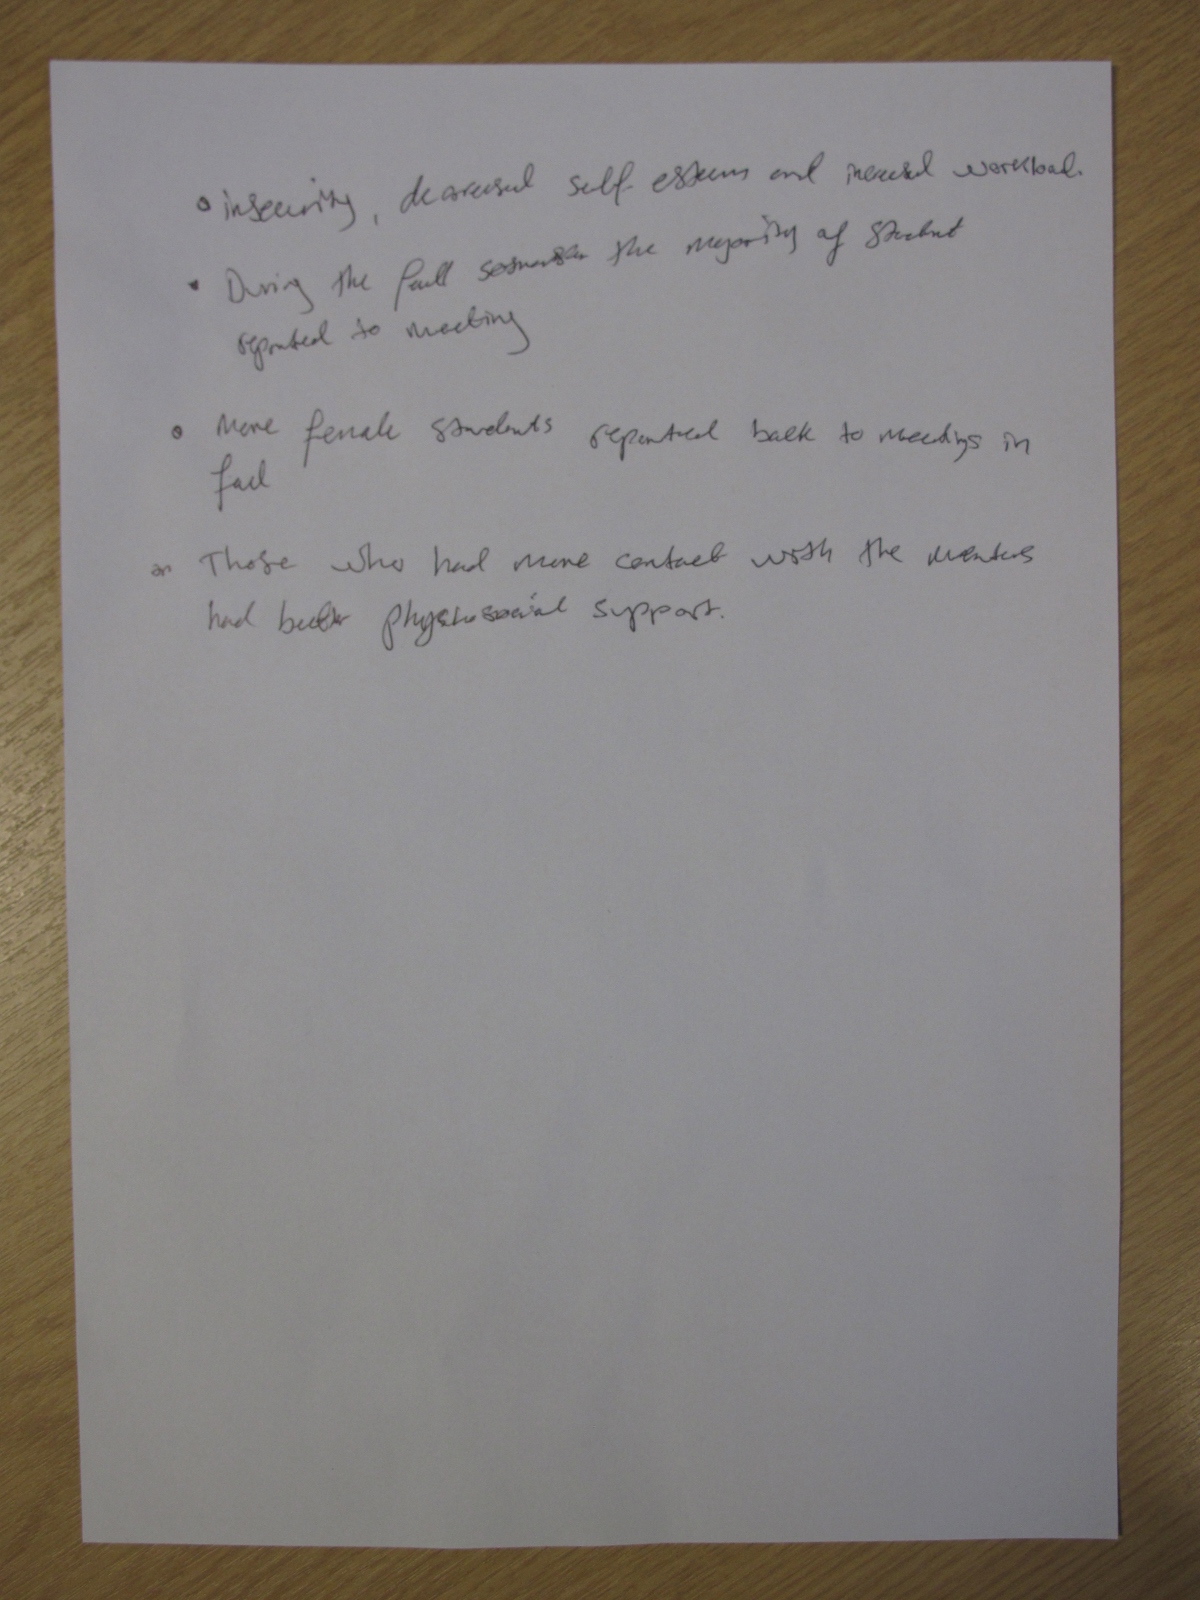 insecurity, decreased self esteem and increased workload.
During the fall semester the majority of student
reported to meeting
More female students reported back to meetings in
fall
Those who had more contact with the mentors
had better physchosocial support.